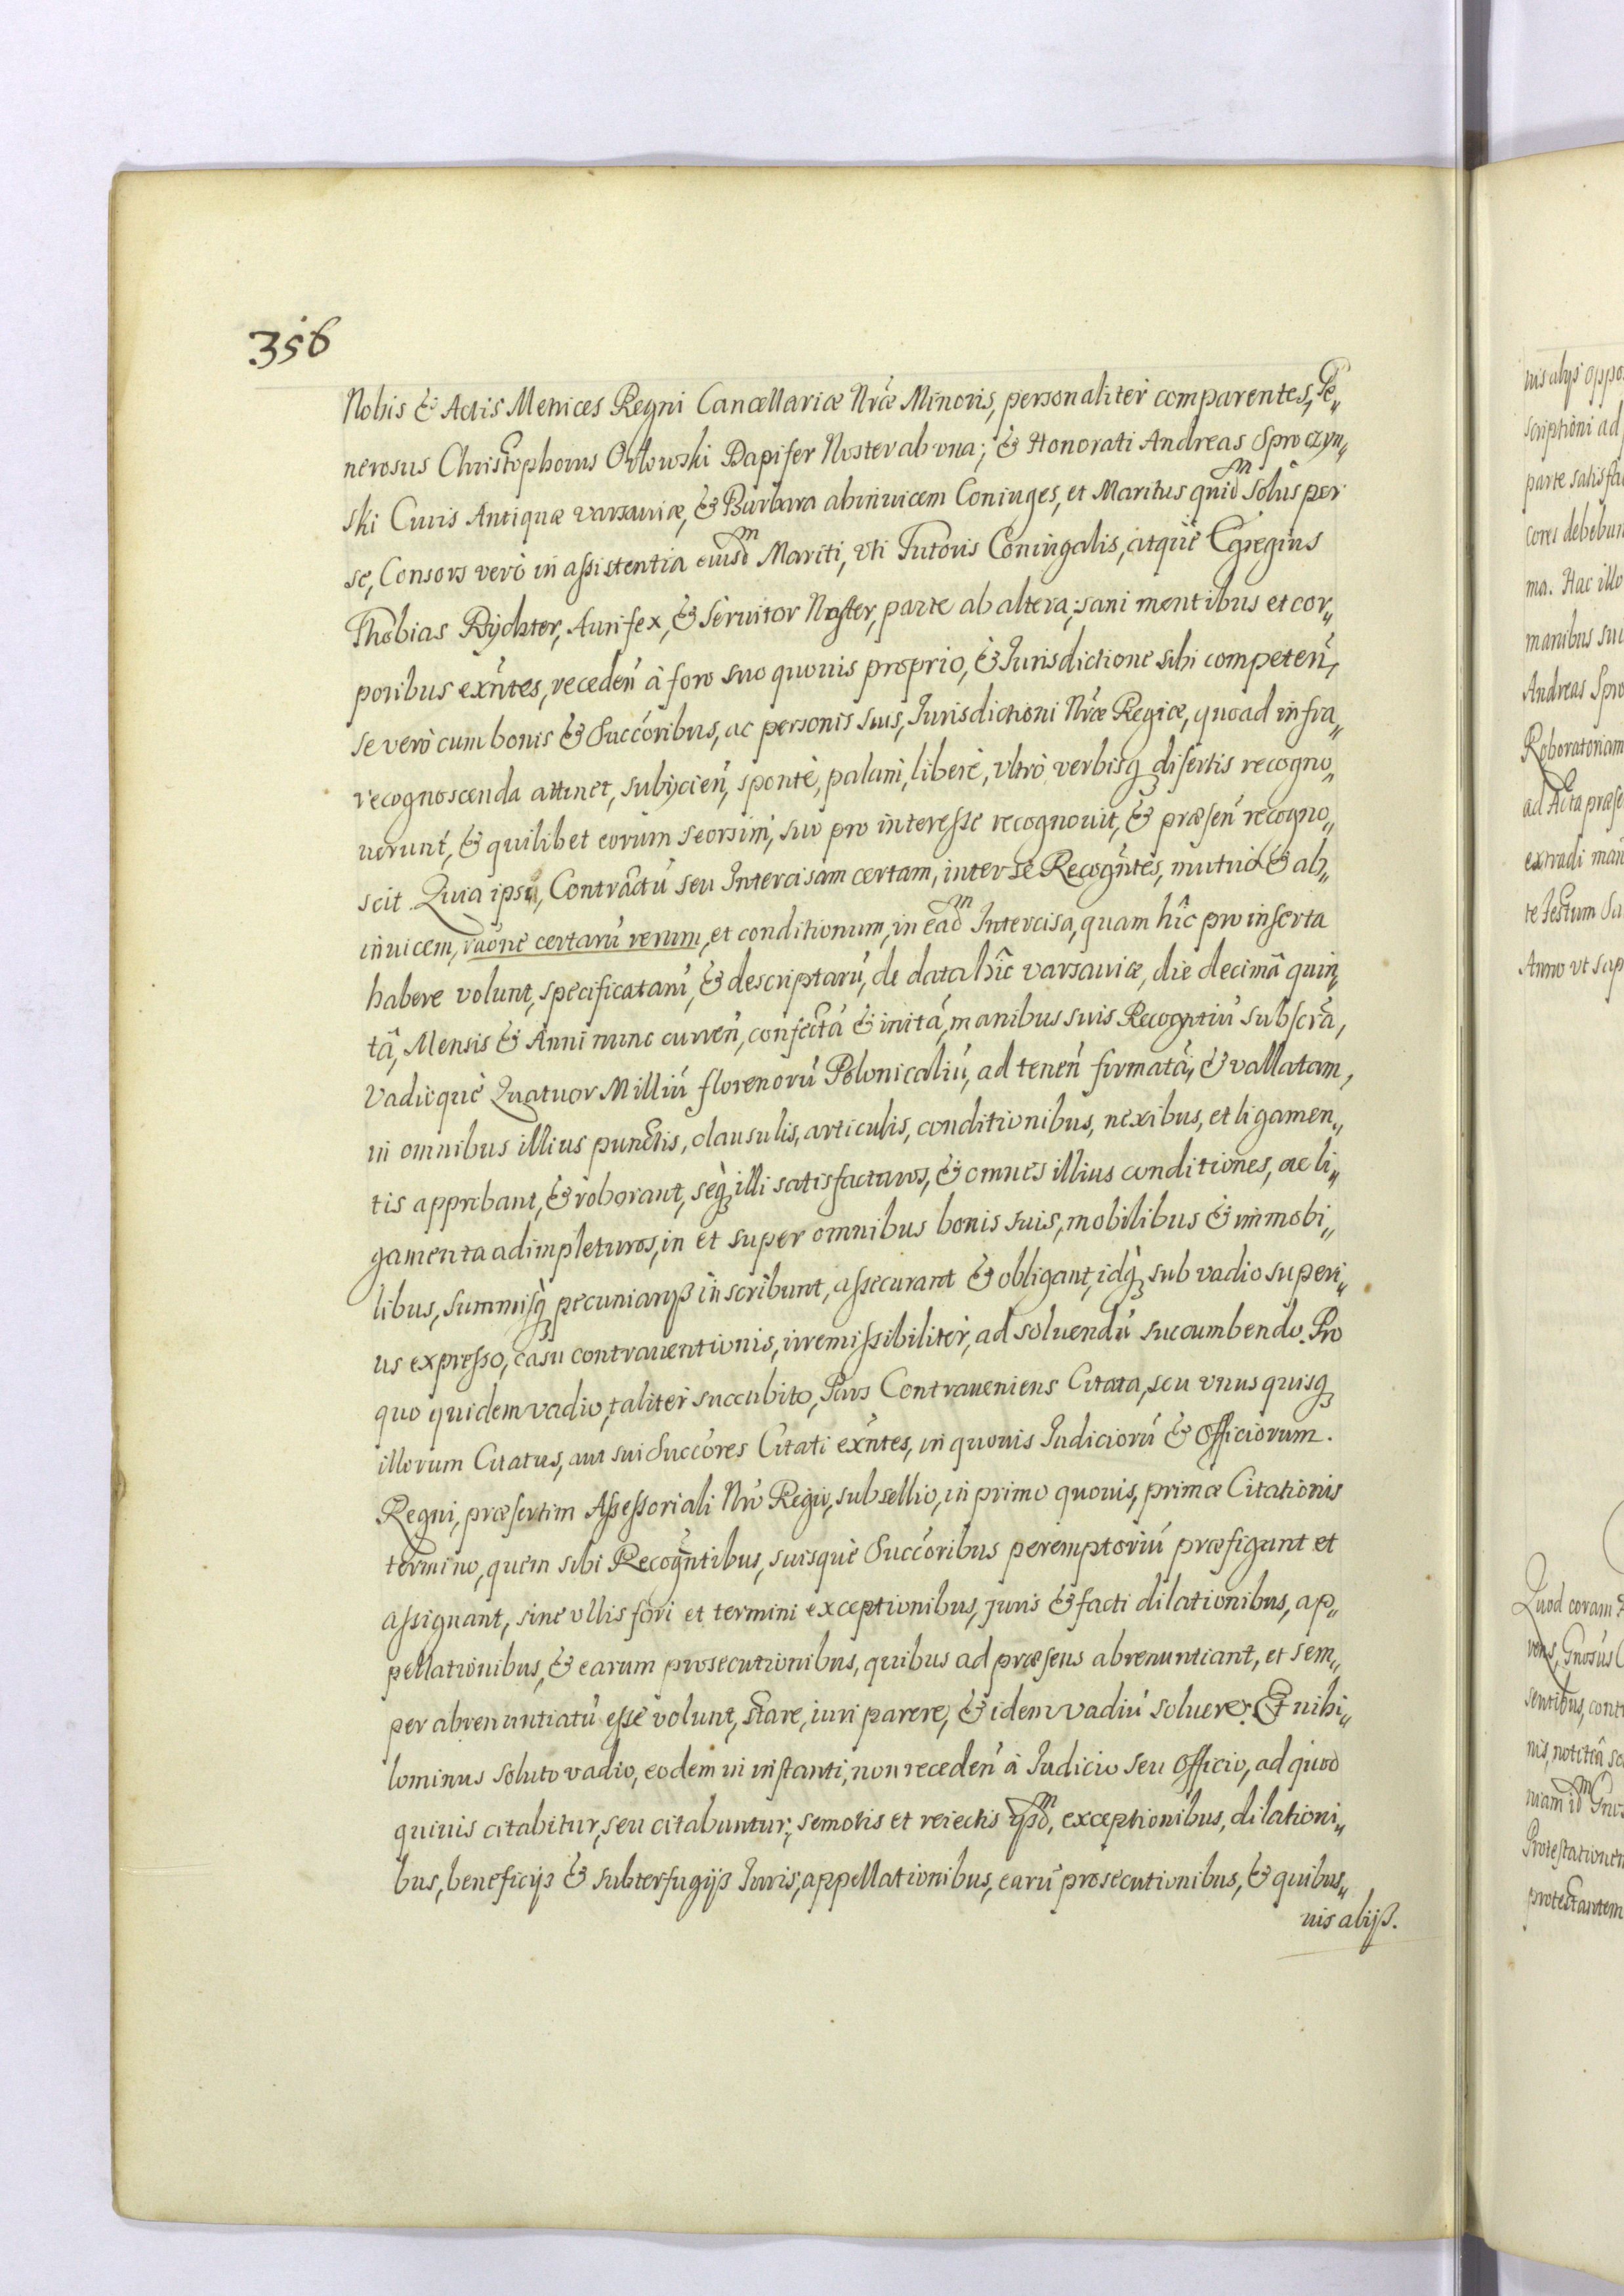 356
Nobis & Actis Metrices Regni Cancellariæ Nræ Minoris, personaliter comparentes, Ge„
nerosus Christophorus Orlowski Dapifer Noster ab vna; & Honorati Andreas Sproczyn„
ski Ciuis Antiquæ varsauiæ, & Barbara abinuicem Coniuges, et Maritus quidm Solus per
se, Consors verò in assistentia eiusdm Mariti, vti Tutoris Coniugalis, atquè Egregius
Thobias Rychter, Aurifex, & Seruitor Noster, parte ab altera; sani mentibus et cor„
poribus exñtes, receden̄ à foro suo quouis proprio, & Jurisdictione sibi competen̄,
se verò cum bonis & Succoribus, ac personis suis, Jurisdictioni Nræ Regiæ, quoad infra„
recognoscenda attinet, subijcien̄, spontè, palam, liberè, vltrò, verbisq disertis recogno„
uerunt, & quilibet eorum seorsim, suo pro interesse recognouit, & præsen̄ recogno„
scit. Quia ipsi, Contractū seu Intercisam certam, inter se Recogn̄tes, mutuò & ab„
inuicem, raōne certarū rerum, et conditionum, in eadm Intercisa, quam hîc pro inserta
habere volunt, specificatarū, & descriptarū, de data hîc varsauiæ, die decimâ quin„
tâ, Mensis & Anni nunc curren̄, confectā & initā, manibus suis Recogn̄tiū subscrā,
vadiequè Quatuor Milliū florenorū Polonicaliū, ad tenen̄ firmatā, & vallatam,
in omnibus illius punctis, clausulis, articulis, conditionibus, nexibus, et ligamen„
tis approbant, & roborant, seq illi satisfacturos, & omnes illius conditiones, ac li„
gamenta adimpleturos, in et super omnibus bonis suis, mobilibus & immobi„
libus, summisq pecuniarijs inscribunt, assecurant & obligant, idq sub vadio superi„
us expresso, casu contrauentionis, irremissibiliter, ad soluendū succumbendo. Pro
quo quidem vadio, taliter succubito, Pars Contraueniens Citata, seu vnusquisq
illorum Citatus, aut sui Succores Citati exñtes, in quouis Judiciorū & Officiorum.
Regni, præsertim Assessoriali Nrō Regio, subsellio, in primo quouis, primæ Citationis
termino, quem sibi Recogn̄tibus, suisquè Succoribus peremptoriū præfigunt et
assignant, sine vllis fori et termini exceptionibus, juris & facti dilationibus, ap„
pellationibus, & earum prosecutionibus, quibus ad præsens abrenuntiant, et sem„
per abrenuntiatū esse volunt, stare, iuri parere, & idem vadiū soluere. Et nihi„
lominus soluto vadio, eodem in instanti, non receden̄ à Judicio seu Officio, ad quod
quiuis citabitur, seu citabuntur; semotis et reiectis ijsdm, exceptionibus, dilationi„
bus, beneficijs & subterfugijs Juris, appellationibus, earū prosecutionibus, & quibus„
uis alijs.
nis alijs oppo
scriptioni ad
parte satisfac
cores debebun
ma. Hac illo
manibus sui
Andreas Spro
Roboratoriam
ad Acta præse
extradi man
te Testum Sa
Anno vt sup
Quod coram
sentibus, cont
nis, notitiâ, se
niam idm Gnos
Protestationem
protestantem